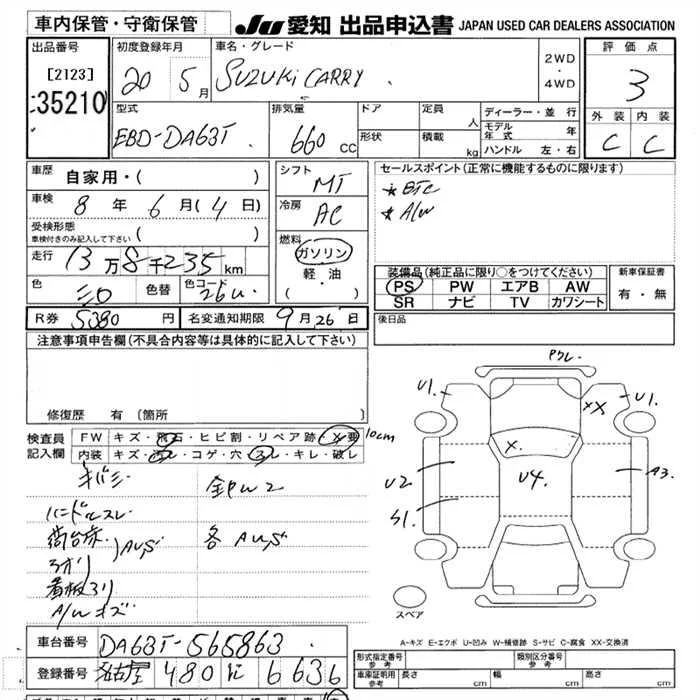 車内保管・守衛保管 JU 愛知 出品申込書 JAPAN USED CAR DEALERS ASSOCIATION
出品番号 [2123] 35210
初度登録年月 20 5月
車名・グレード SUZUKI CARRY
2WD・4WD
評価点 3
型式 EBD-DA63T
排気量 660 CC
ドア
形状
定員 人
積載 kg
ディーラー・並行
モデル年式 年
ハンドル 左・右
外装 内装
C C
車歴 自家用・( )
車検 8年 6月(4日)
受検形態
車検付きのみ記入して下さい ( )
走行 13万8千235km
色 色替 色コード 26U
シフト MT
冷房 AC
燃料 ガソリン・軽油・( )
セールスポイント(正常に機能するものに限ります)
★ ETC
★ A/W
装備品(純正品に限り○をつけてください)
PS PW エアB AW
SR ナビ TV カワシート
新車保証書
有・無
R券 5380円 名変通知期限 9月26日
後日品
注意事項申告欄(不具合内容等は具体的に記入して下さい)
修復歴 有(箇所
検査員記入欄
FW キズ・飛石・ヒビ割・リペア跡・X要 10cm
内装 キズ・汚レ・コゲ・穴・スレ・キレ・破レ
キバミ
ハンドルスレ
荷台床
アオリ
A/Wキズ
各
U1 U1 XX X U4 U2 S1 A3
スペア
A-キズ E-エクボ U-凹み W-補修跡 S-サビ C-腐食 XX-交換済
車台番号 DA63T-565863
登録番号 名古屋 480 に 6636
形式指定番号 参考
類別区分番号 参考
車庫証明用 参考 長さ cm 幅 cm 高さ cm